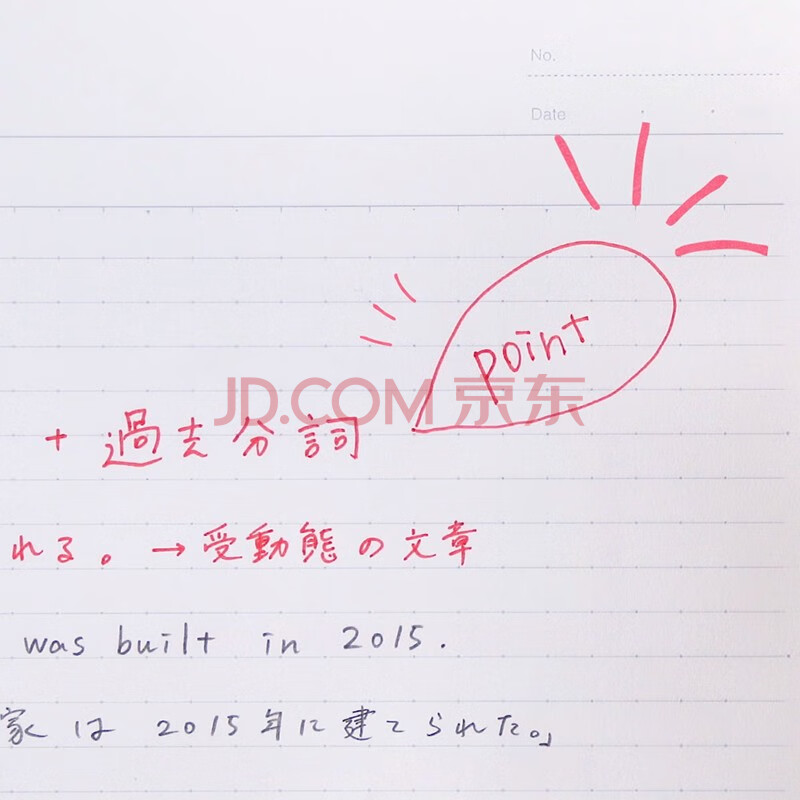 No.
Date
point
JD.COM 京东
+ 過去分詞
れる。→受動態の文章
was built in 2015.
家は 2015年に建てられた。」